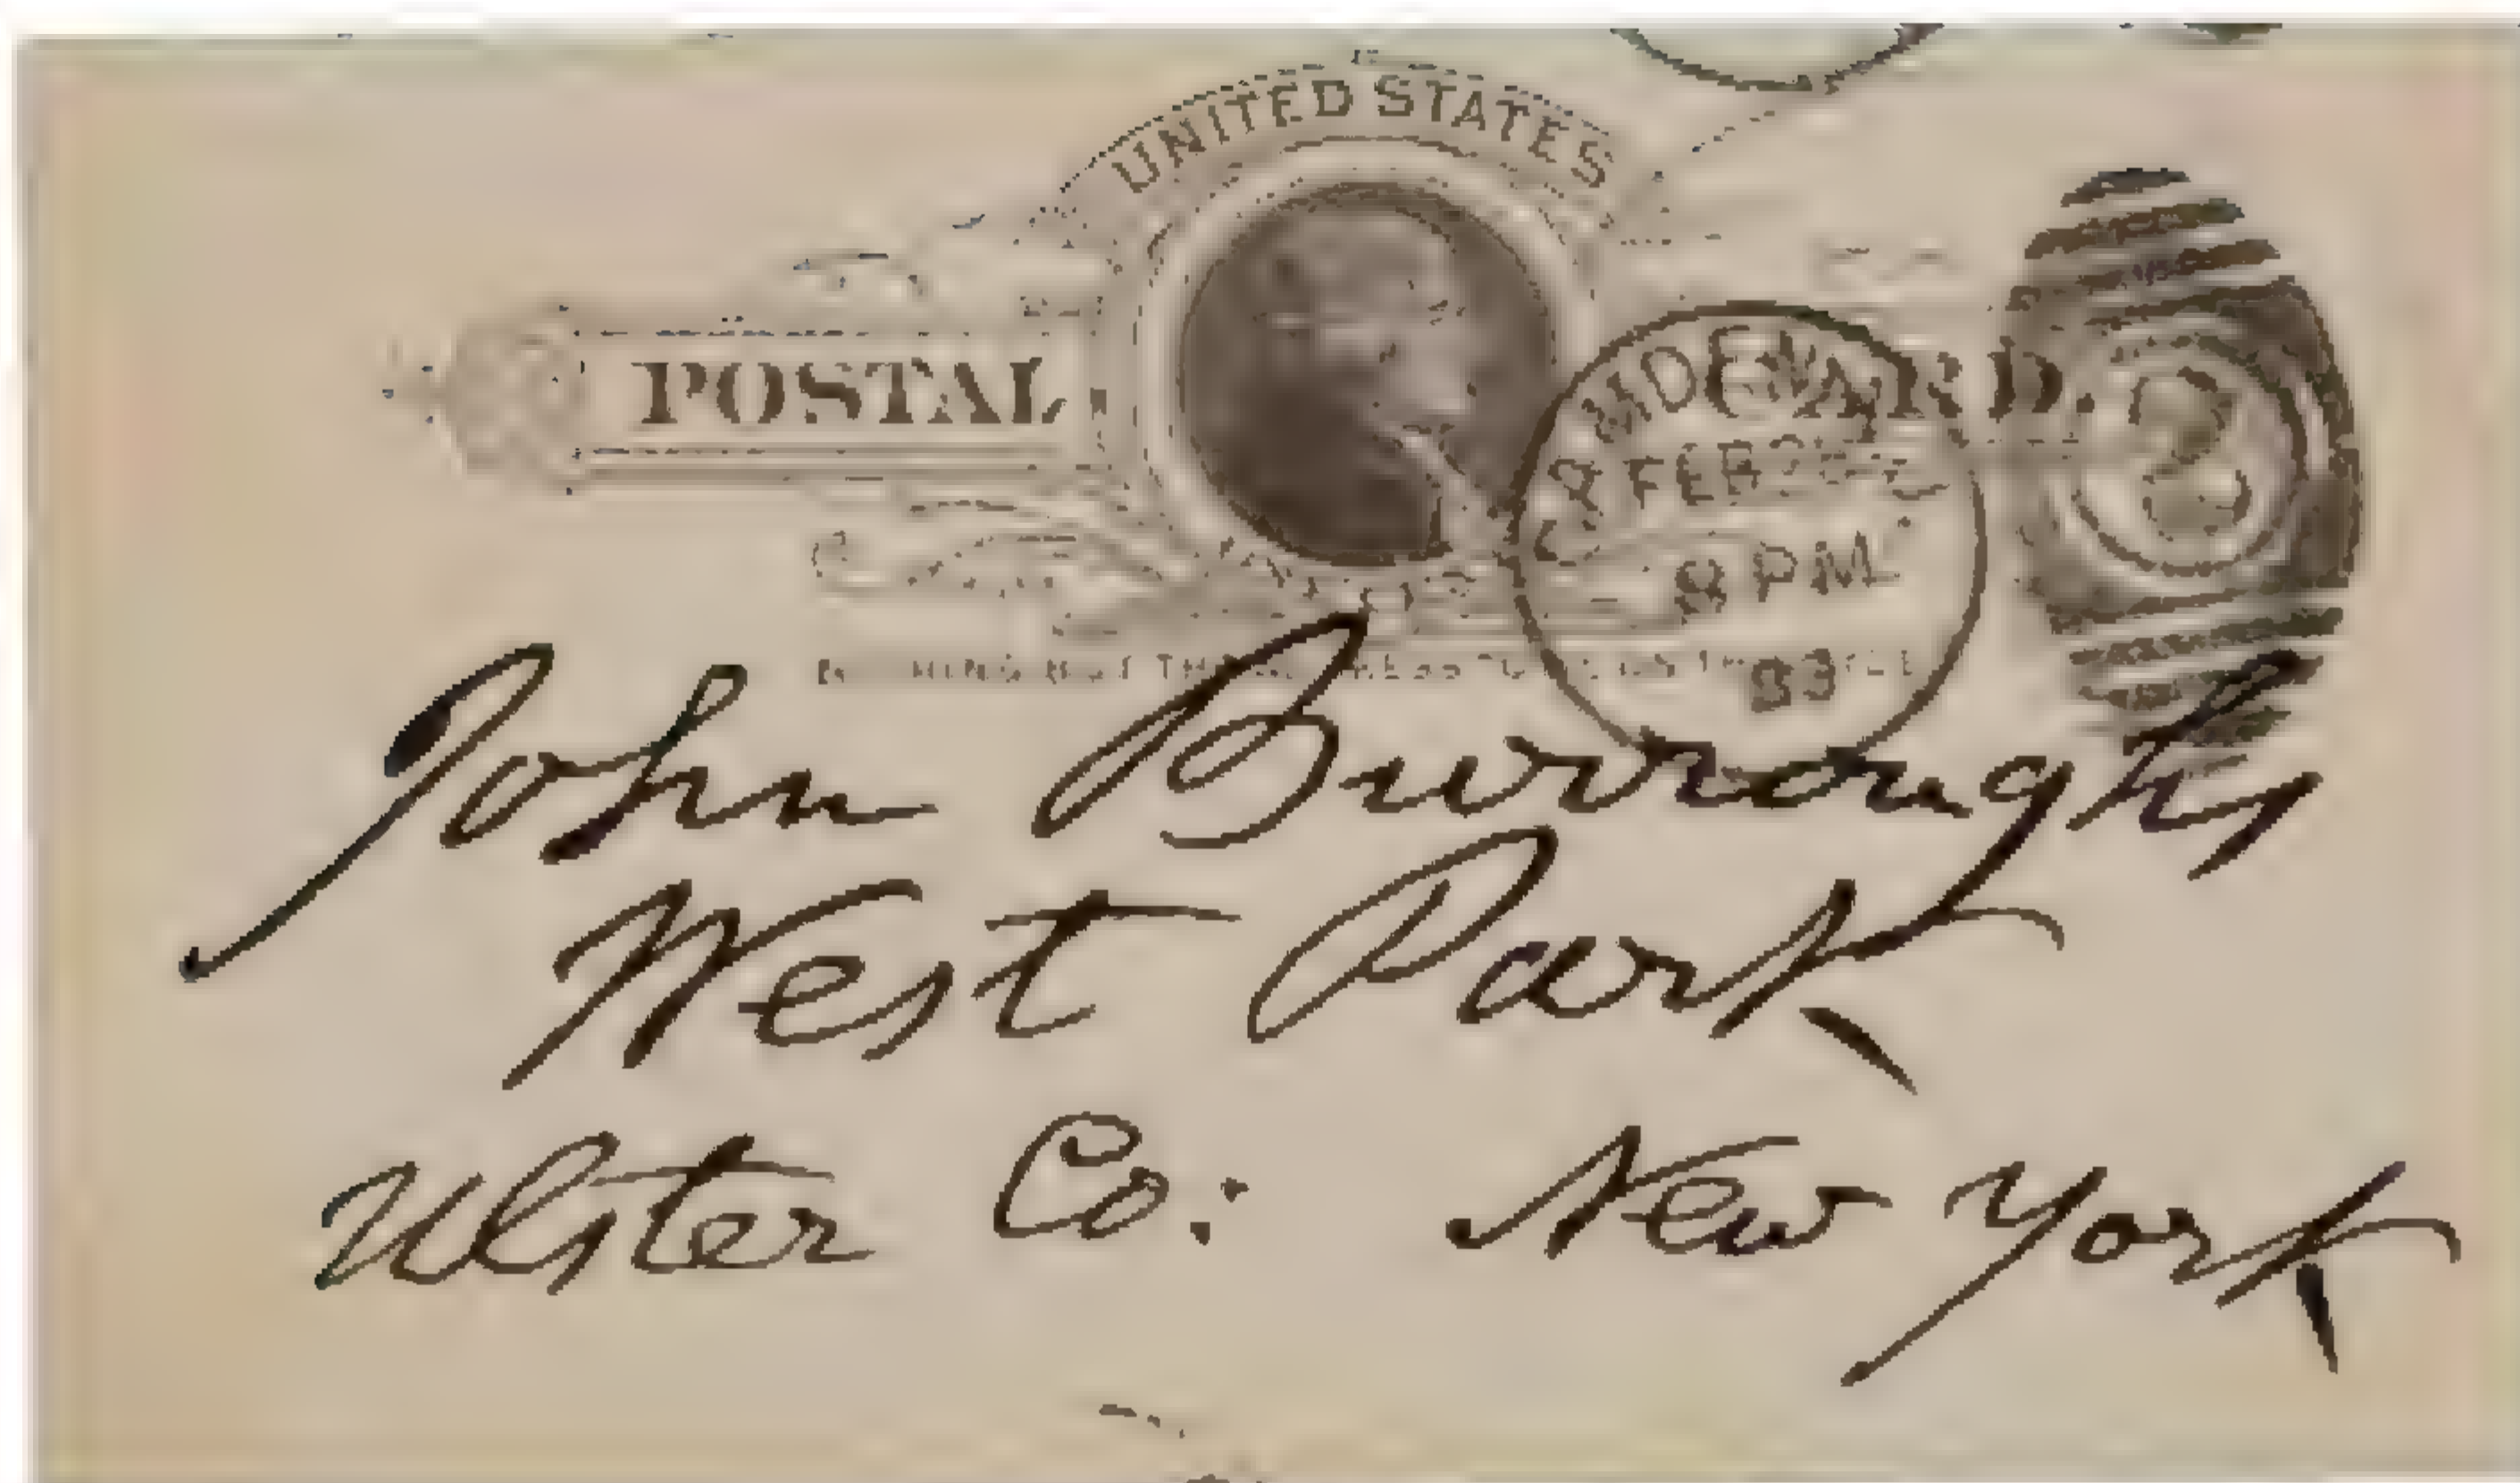 UNITED STATES
POSTAL CARD.
CAMDEN N.J.
FEB
8 PM
88
2
John Burroughs
West Park
Ulster Co: New York